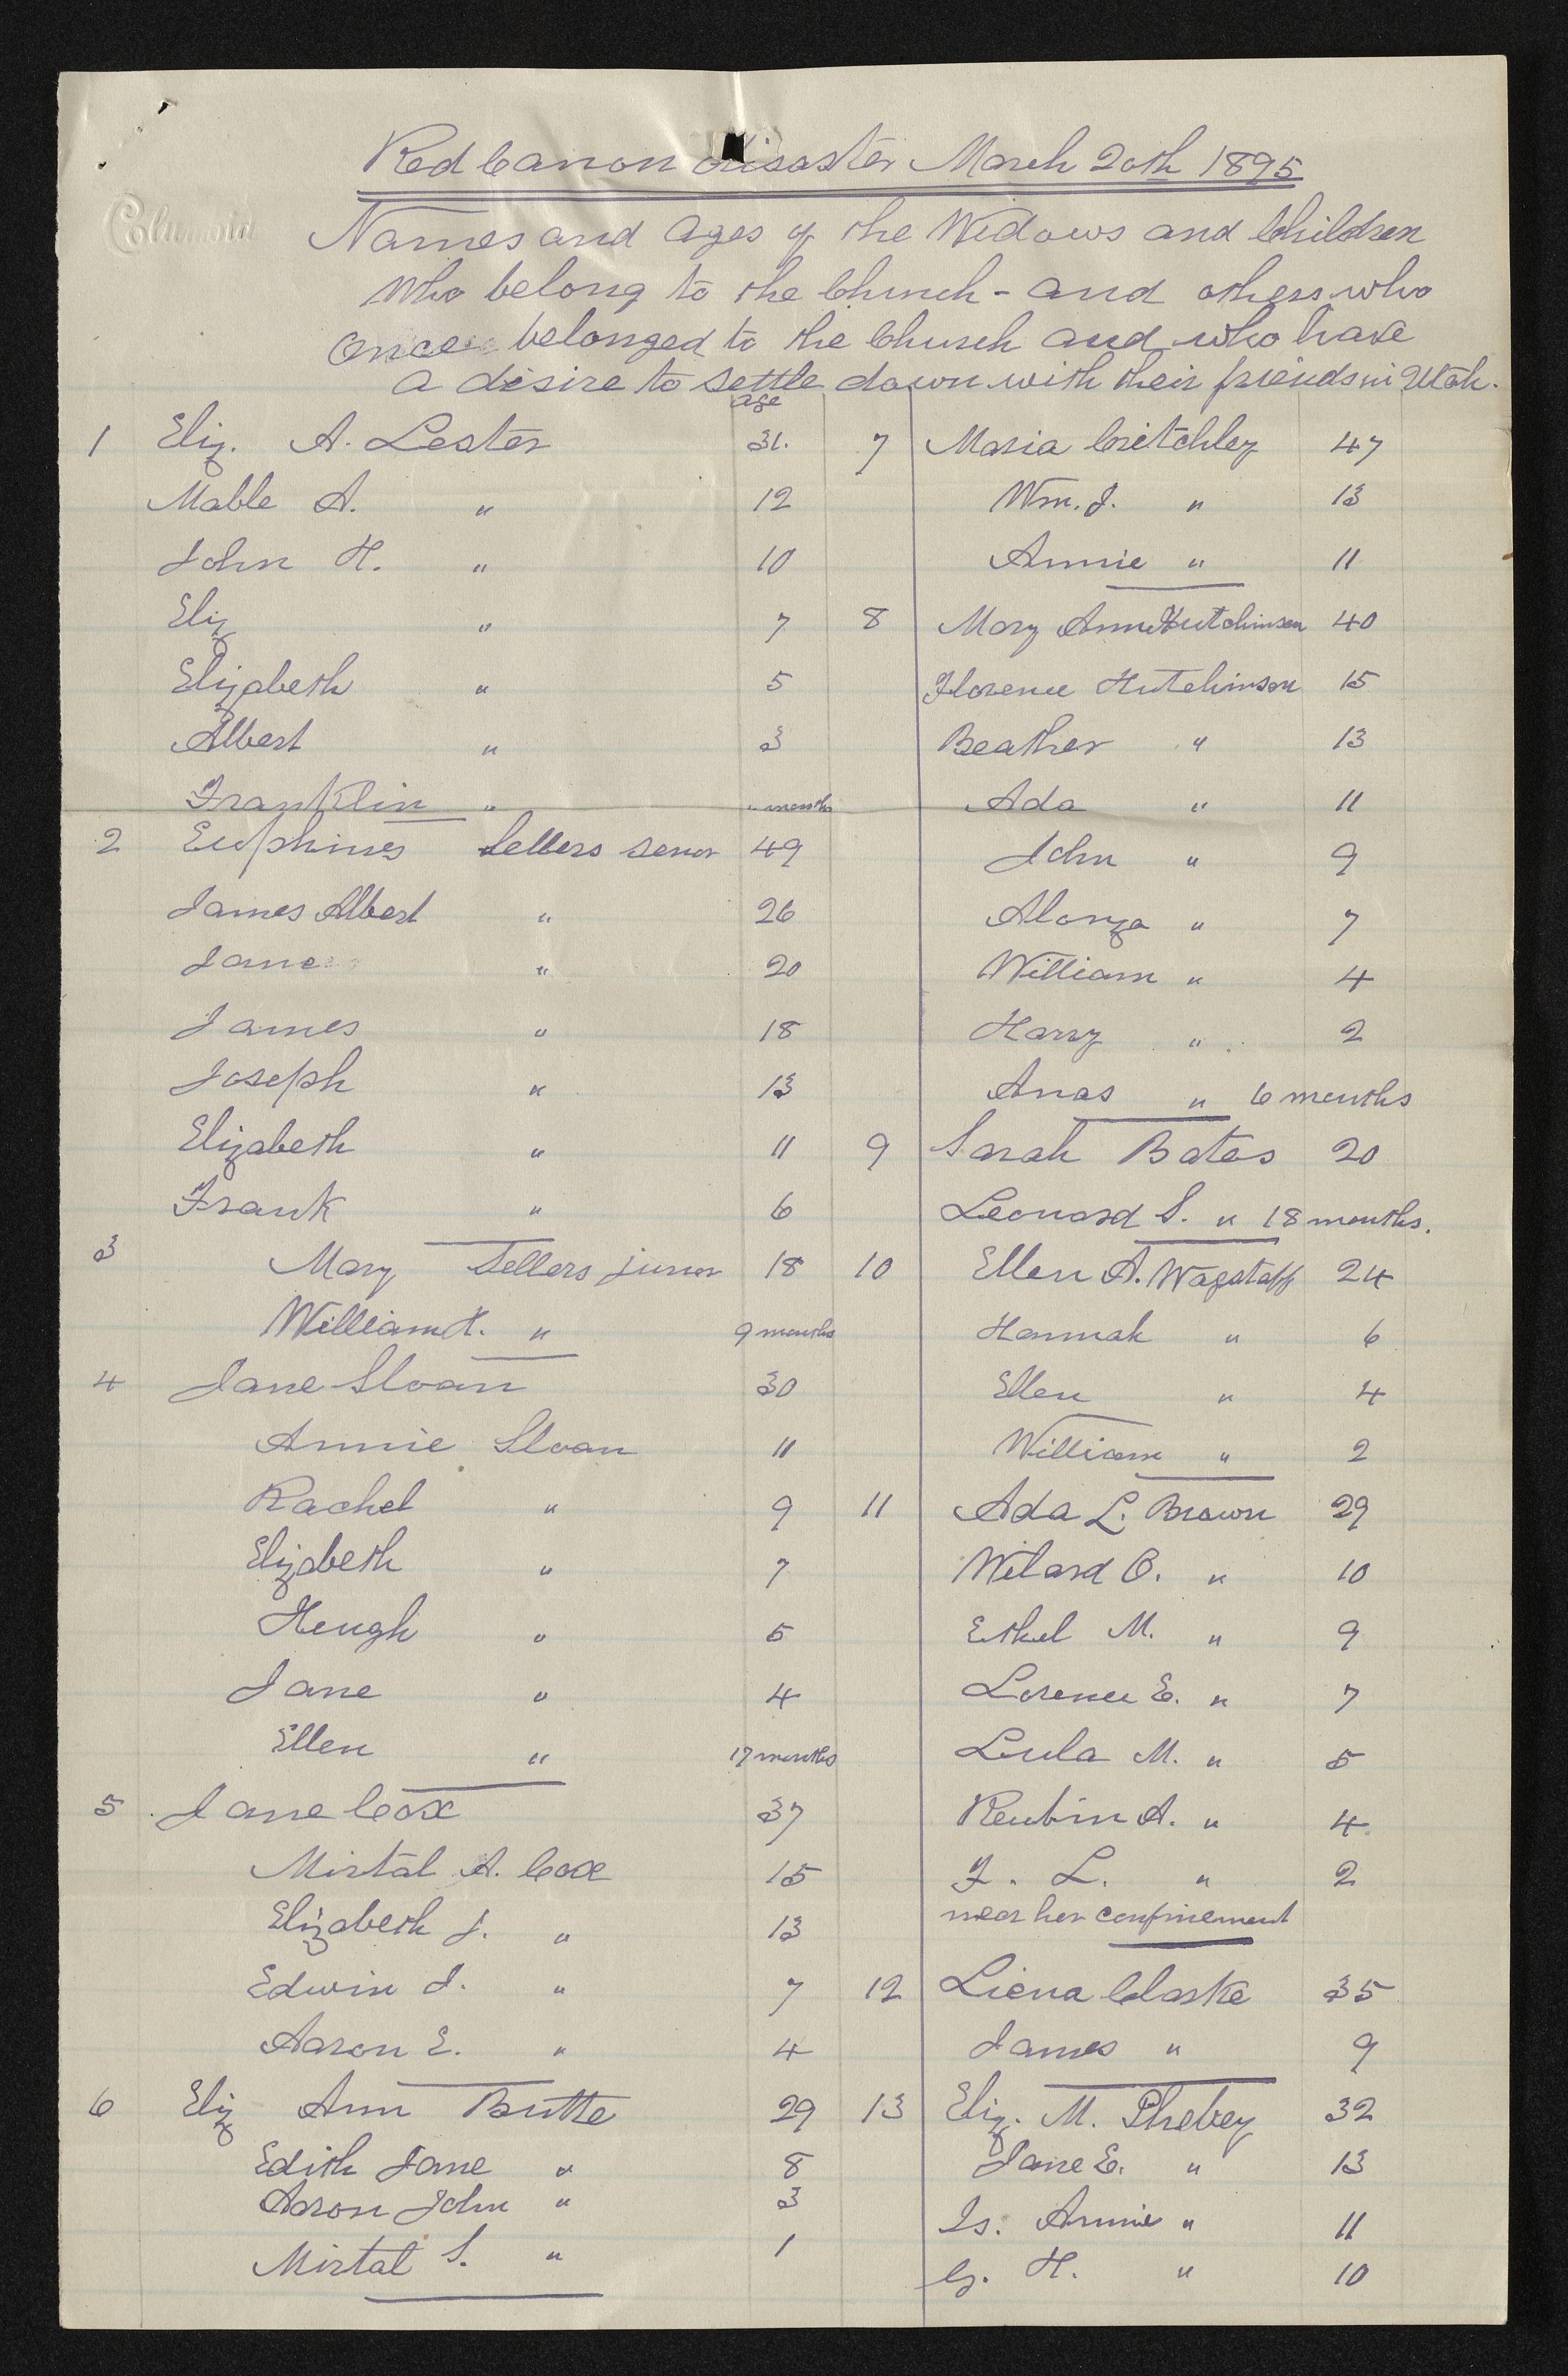 Red Canon disaster March 20th 1895
Columbia
Names and Ages of the Widows and Children
Who belong to the Church - and others who
once belonged to the Church and who have
a desire to settle down with their friends in Utah.
age
1 Eliz. A. Lester 31.
Mable A. " 12
John H. " 10
Eliz " 7
Elizabeth " 5
Albert " 3
Franklin " " months
2 Euphines Sellers senor 49
James Albert " 26
Jane " 20
James " 18
Joseph " 13
Elizabeth " 11
Frank " 6
3 Mary Sellers junor 18
William H. " 9 months
4 Jane Sloan 30
Annie Sloan 11
Rachel " 9
Elizabeth " 7
Heugh " 5
Jane " 4
Ellen " 17 months
5 Jane Cox 37
Mirtal A. Cox 15
Elizabeth J. " 13
Edwin J. " 7
Aaron E. " 4
6 Eliz Ann Butte 29
Edith Jane " 8
Aaron John " 3
Mirtal S. " 1
7 Maria Critchley 47
Wm. J. " 13
Annie " 11
8 Mary Ann Hutchinson 40
Florence Hutchinson 15
Beather " 13
Ada " 11
John " 9
Alonza " 7
William " 4
Harry " 2
Anas " 6 months
9 Sarah Bates 20
Leonard S. " 18 months.
10 Ellen A. Wagstaff 24
Hannah " 6
Ellen " 4
William " 2
11 Ada L. Brown 29
Wilard O. " 10
Ethel M. " 9
Lorence E. " 7
Lula M. " 5
Reubin A. " 4
F. L. " 2
near her confinement
12 Liena Clarke 35
James " 9
13 Eliz. M. Phebey 32
Jane E. " 13
Is. Annie " 11
G. H. " 10